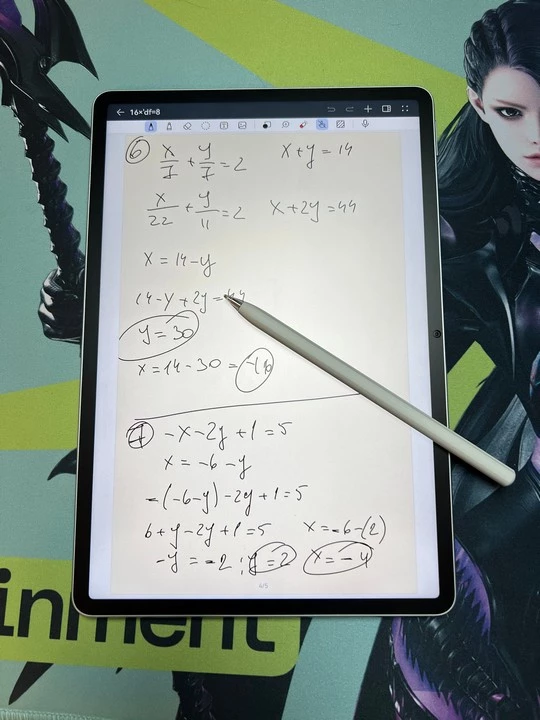 16×'df=8
⑥ x/7 + y/7 = 2   x+y = 14
x/22 + y/11 = 2   x+2y = 44
x = 14-y
14-y+2y=44
y=30
x = 14-30 = -16
⑦ -x-2y+1=5
x = -6-y
-(-6-y)-2y+1=5
6+y-2y+1=5   x=-6-(2)
-y = -2 ; y=2   x=-4
inment